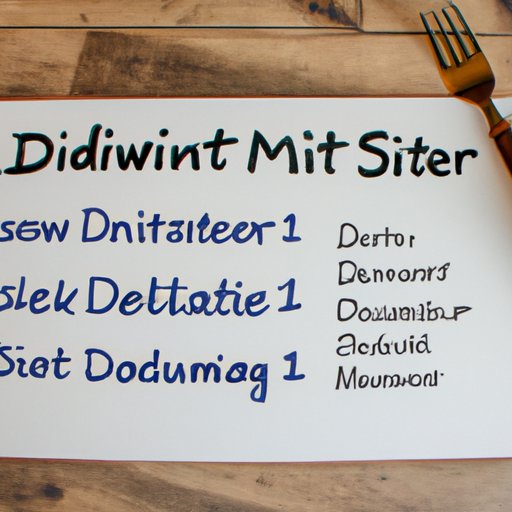 .Didiwint Mit Siter
ssw Dnitaiteer 1
slek Deltatie 1
Siet Dodumiag 1
Dertor
Denoonrs
Acguid
Mounwont.